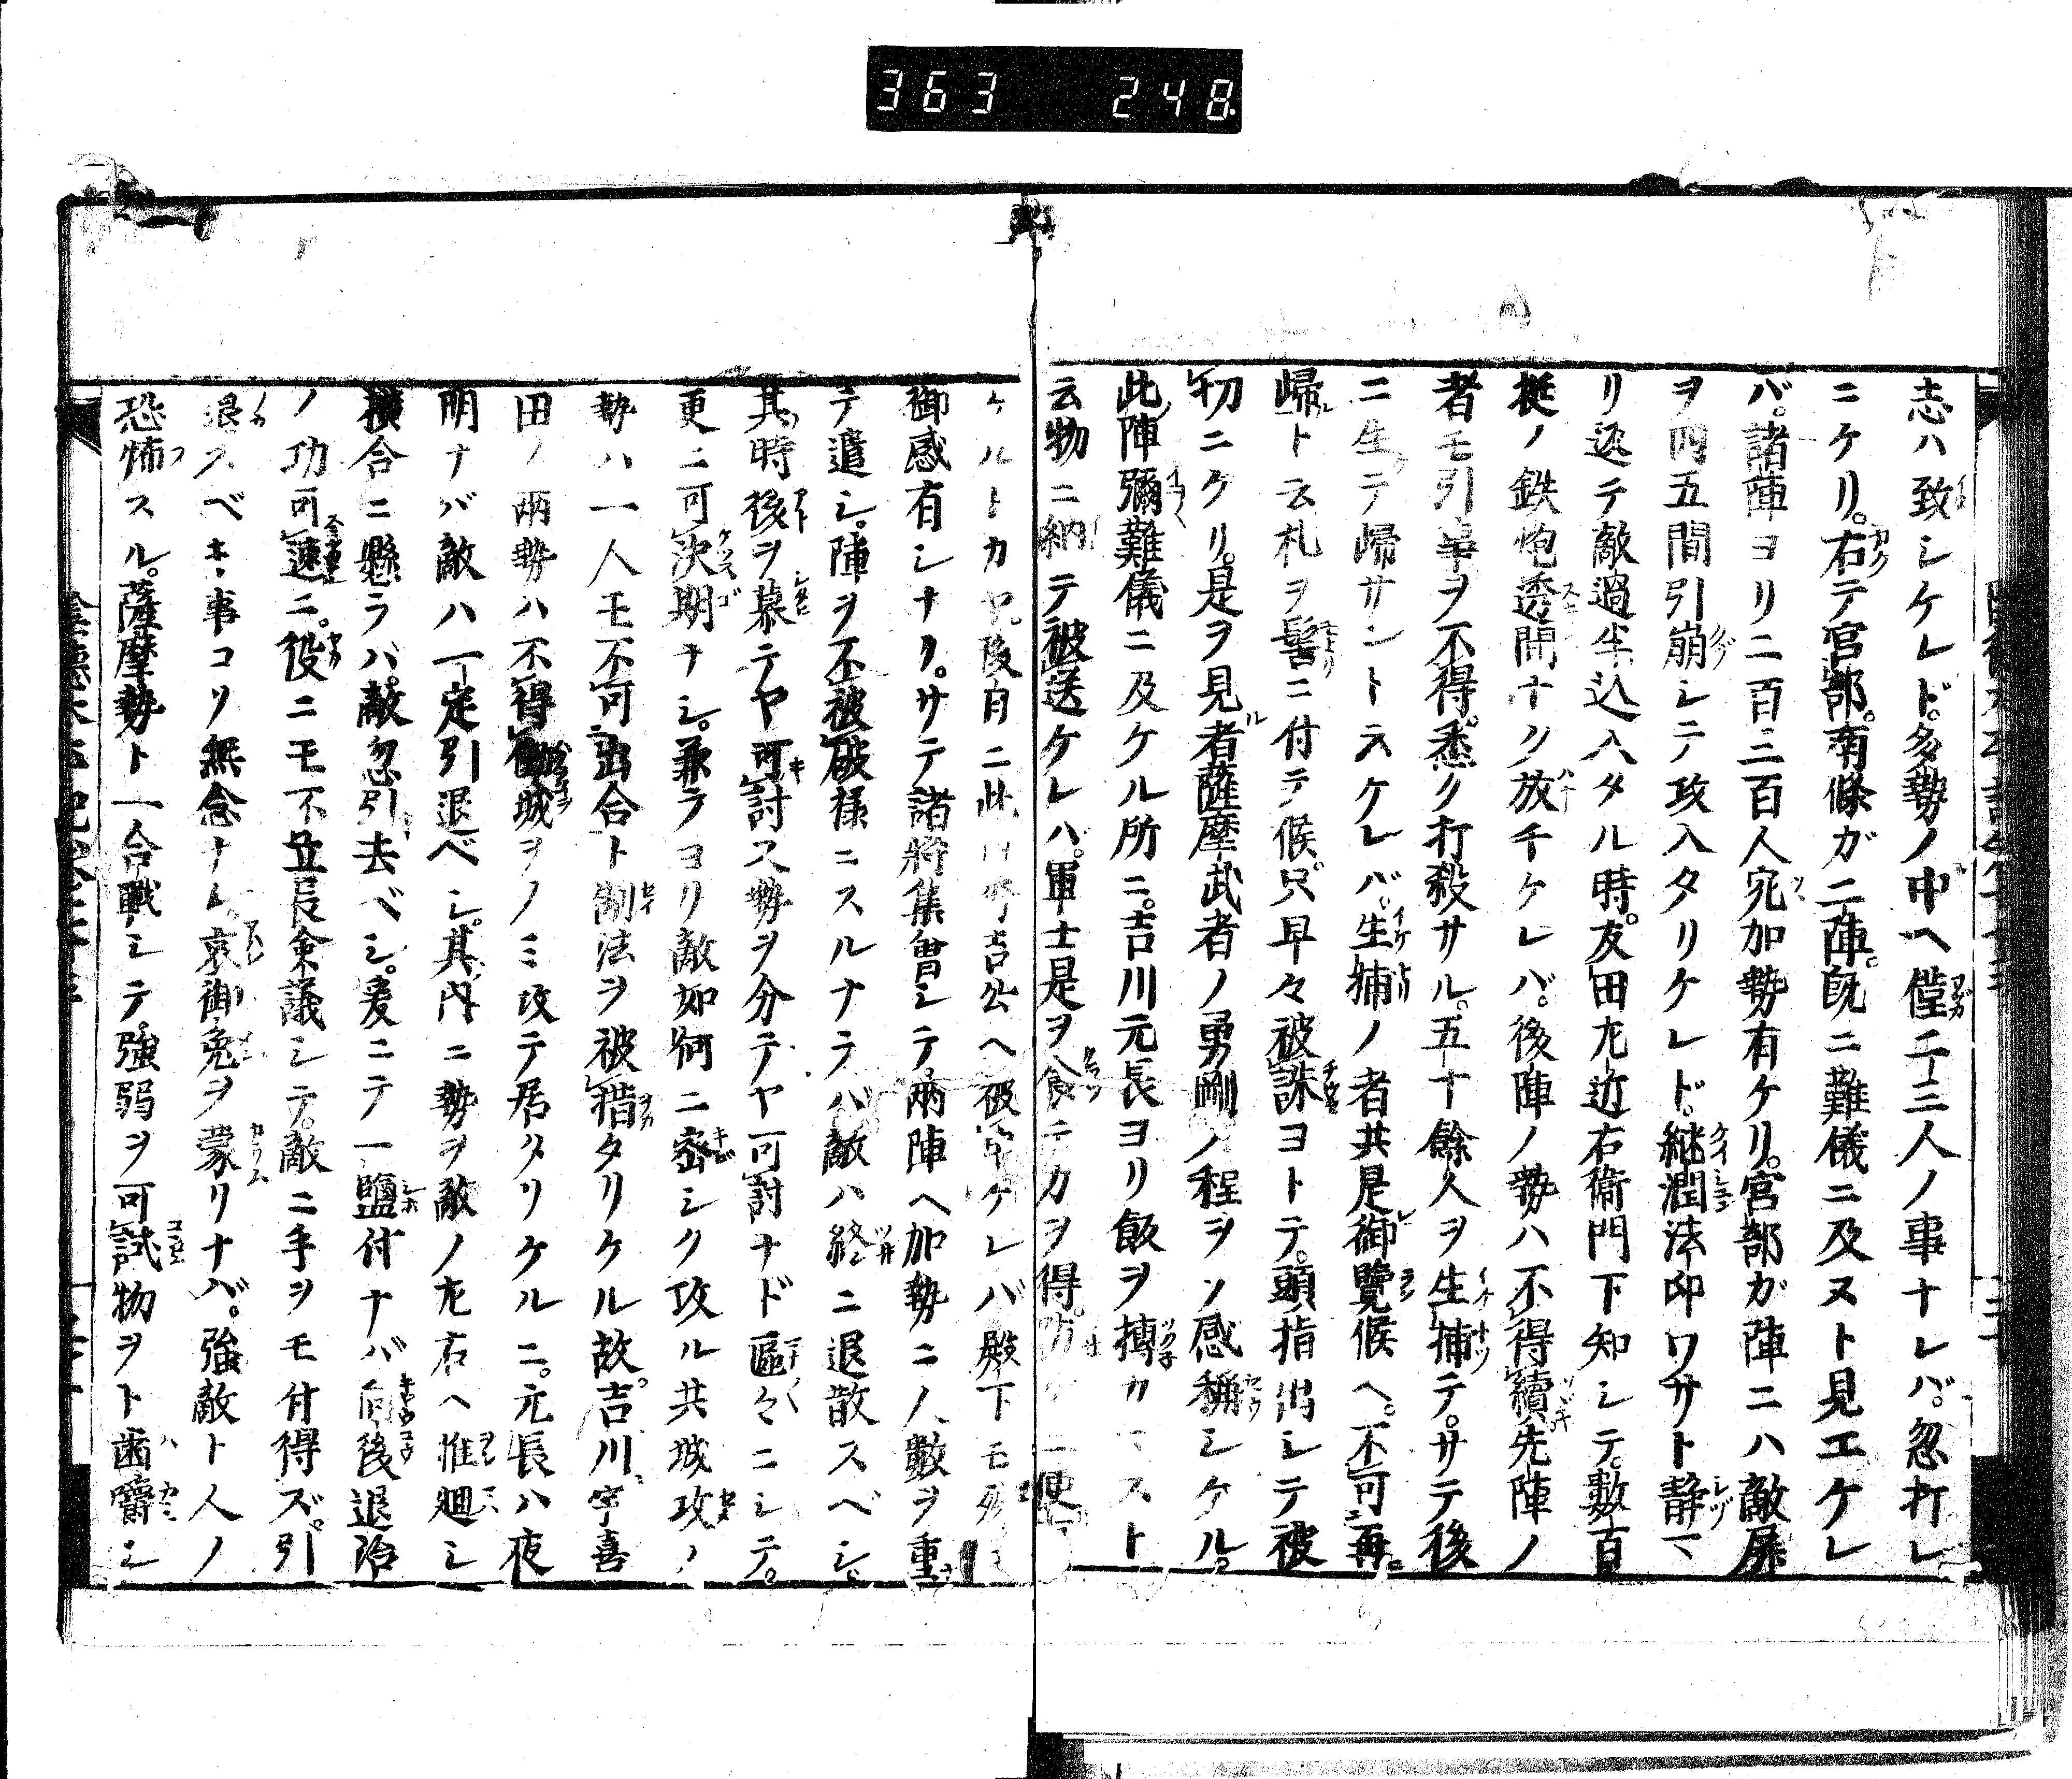 363 248
志ハ致シケレド多勢ノ中ヘ僅二三人ノ事ナレバ忽打レ
ニケリ右テ宮部南條ガ二陣既ニ難儀ニ及ヌト見エケレ
バ諸陣ヨリ二百三百人宛加勢有ケリ宮部ガ陣ニハ敵屏
ヲ四五間引崩シテ攻入タリケレド継潤法印ワサト静マ
リ返テ敵過半込入タル時友田左近右衛門下知シテ數百
挺ノ鉄炮透間ナク放チケレバ後陣ノ勢ハ不得續先陣ノ
者モ引事ヲ不得悉ク打殺サル五十餘人ヲ生捕テサテ後
ニ生テ歸サントスケレバ生捕ノ者共是御覽候ヘ不可再
歸ト云札ヲ髻ニ付テ候只早々被誅ヨトテ頭指出シテ被
切ニケリ是ヲ見者薩摩武者ノ勇剛ノ程ヲソ感稱シケル
此陣彌難儀ニ及ケル所ニ吉川元長ヨリ飯ヲ摶カマスト
云物ニ納テ被送ケレバ軍士是ヲ食テカヲ得防 ニ便
ケルトカヤ後日ニ此由秀吉公ヘ被申ケレバ殿下モ
御感有シナリサテ諸將集會シテ兩陣ヘ加勢ニ人數ヲ重
テ遣シ陣ヲ不被破様ニスルナラバ敵ハ終ニ退散スベシ
其時後ヲ慕テヤ可討ス勢ヲ分テヤ可討ナド區々ニシテ
更ニ可決期ナシ兼ラヨリ敵如何ニ密シク攻ル共城攻ノ
勢ハ一人モ不可出合ト制法ヲ被措タリケル故吉川宇喜
田ノ兩勢ハ不得働城ヲノミ攻テ居タリケルニ元長ハ夜
明ナバ敵ハ一定引退ベシ其内ニ勢ヲ敵ノ左右ヘ推廻シ
横合ニ懸ラバ敵忽引去ベシ爰ニテ一鹽付ナバ向後退治
ノ功可速ニ役ニモ不立長僉議シテ敵ニ手ヲモ付得ズ引
退スベキ事コソ無念ナレ哀御免ヲ蒙リナバ強敵ト人ノ
恐怖スル薩摩勢ト一合戰シテ強弱ヲ可試物ヲト歯嚼シ